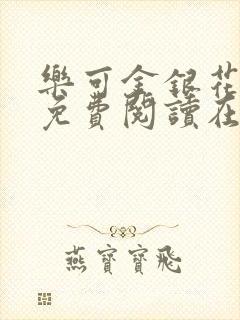 樂可金銀花
免費閱讀在
燕寶寶飛